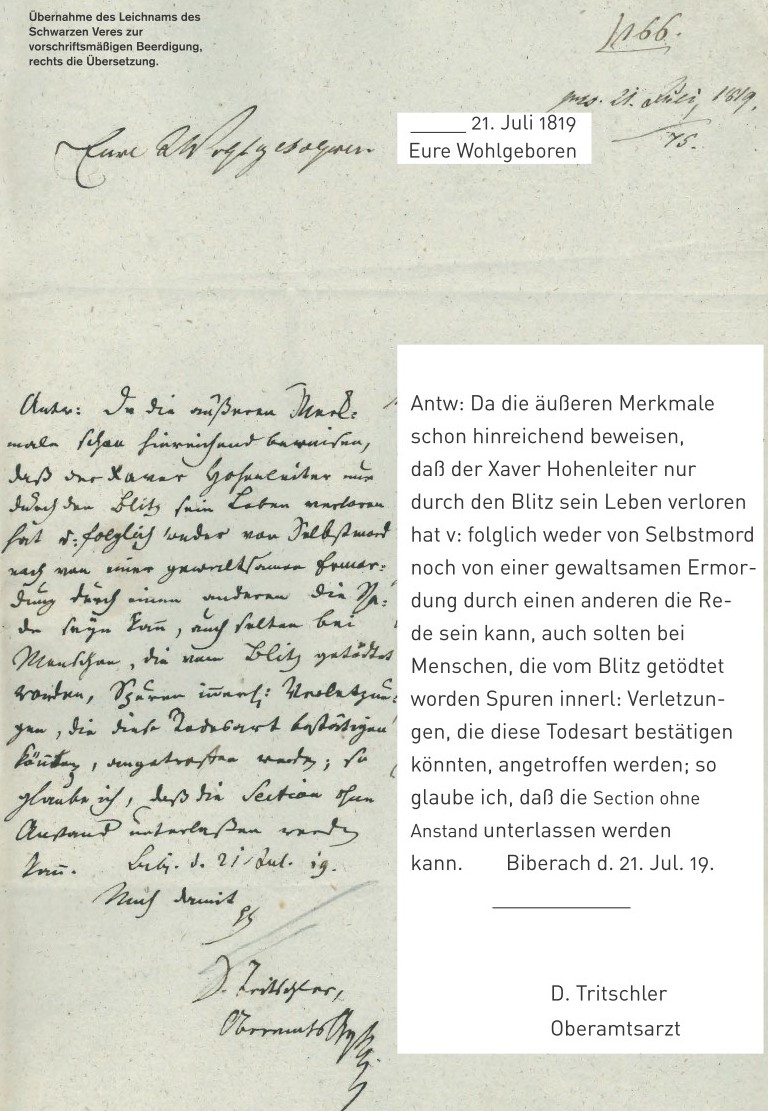 Übernahme des Leichnams des
Schwarzen Veres zur
vorschriftsmäßigen Beerdigung,
rechts die Übersetzung.
166.
21. Juli, 1819,
75.
Eure Wohlgeboren
______ 21. Juli 1819
Eure Wohlgeboren
Antw: Da die äußeren Merk=
male schon hinreichend beweisen,
daß der Xaver Hohenleiter nur
durch den Blitz sein Leben verloren
hat v: folglich weder von Selbstmord
noch von einer gewaltsamen Ermor=
dung durch einen anderen die Re=
de seyn kann, auch selten bei
Menschen, die vom Blitz getödtet
worden, Spuren innerl: Verletzun=
gen, die diese Todesart bestätigen
könnten, angetroffen werden; so
glaube ich, daß die Section ohne
Anstand unterlaßen werden
kann. Bib. d. 21 Jul. 19.
D. Tritschler,
Antw: Da die äußeren Merkmale
schon hinreichend beweisen,
daß der Xaver Hohenleiter nur
durch den Blitz sein Leben verloren
hat v: folglich weder von Selbstmord
noch von einer gewaltsamen Ermor-
dung durch einen anderen die Re-
de sein kann, auch solten bei
Menschen, die vom Blitz getödtet
worden Spuren innerl: Verletzun-
gen, die diese Todesart bestätigen
könnten, angetroffen werden; so
glaube ich, daß die Section ohne
Anstand unterlassen werden
kann. Biberach d. 21. Jul. 19.
D. Tritschler
Oberamtsarzt